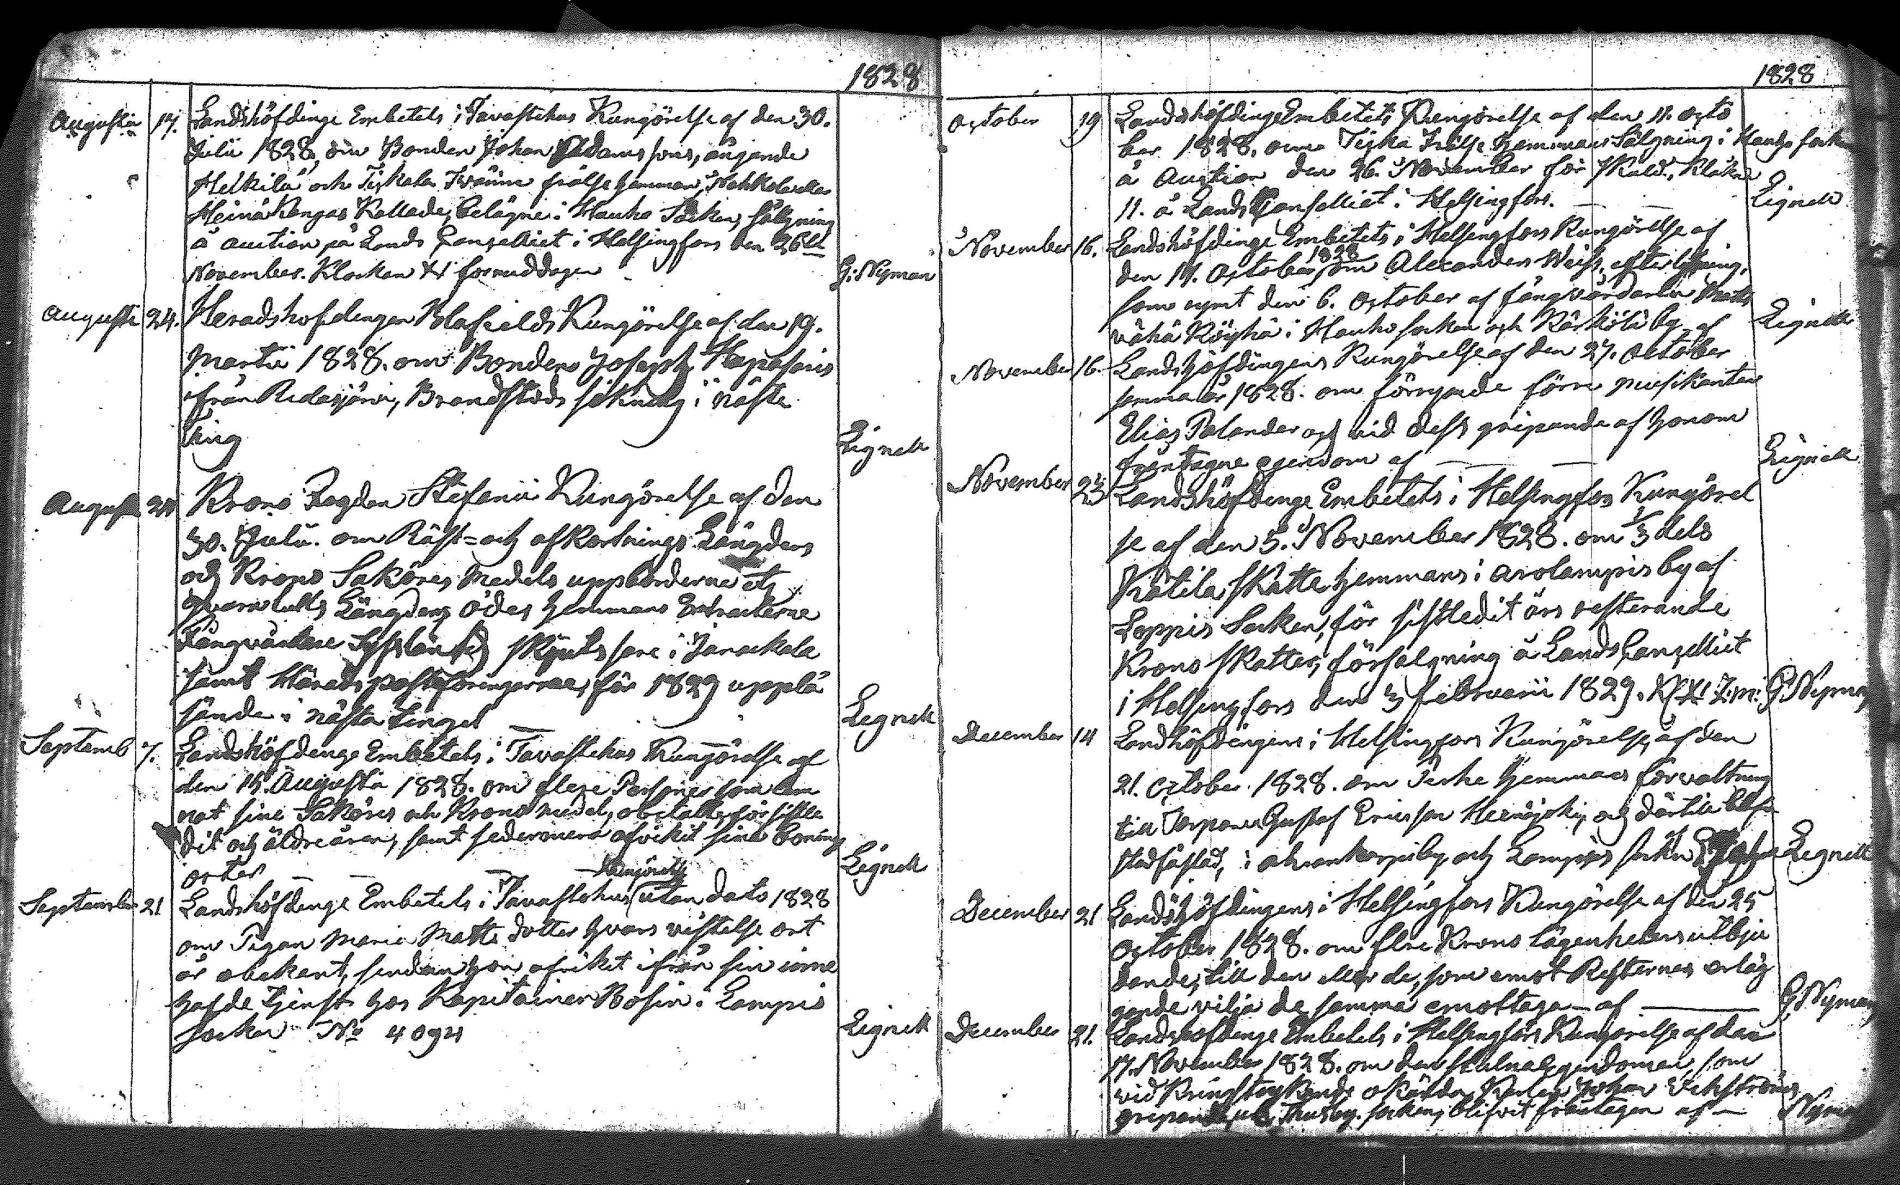 1828
Augusti 17. Landshöfdinge Embetets i Tavastehus Kungörelse af den 30.
Julii 1828, om Bonden Johan Adams sons, ägande
Heikilä och frälse hemman,
Heinä Kangas Kallade, belägne i Hauho Socken, försäljning
å auction på Lands Cancelliet i Helsingfors den 26te
November. Klockan XI förmiddagen G: Nyman
Augusti 24. Heradshöfdingen Kungörelse af den 19.
Martii 1828. om Bonden Joseph
ifrån Brandstods sökning i näste
ting Lignell
Augusti 24 Krono Fogden Stefanii Kungörelse af den
30. Julii. om Räst- och afkortnings Längdens
och Krono Saköres Medels uppbörderne
Längdens ödes hemmans Extracterne
skjuts i Janakala
samt för 1829 upplä
sande i nästa tinget Lignell
Septemb 7. Landshöfdinge Embetets i Tavastehus Kungörelse af
den 15. Augustii 1828. om flere Personer som
nat sine Saköres och Krono medel, obetalte för sistle
dit och äldre åren, samt sedermera afvikit sina bonings
orter Lignell
September 21 Landshöfdinge Embetets i Tavastehus Kungörelse utan dato 1828
om Pigan Maria Matts dotter hvars vistelse ort
är obekant, sendan hon afvikit ifrån sin inne
hafde tjenst hos Kapitainen Bosin i Lampis
socken No 4094 Lignell
1828
October 19 Landshöfdinge Embetets Kungörelse af den 11. octo
ber 1828. om frälse hemmans Sälgning i Hauho sock
å Auction den 26. November för Skuld, Klockan
11. å Lands Cancelliet i Helsingfors. Lignell
November 16. Landshöfdinge Embetets i Helsingfors Kungörelse af
den 17. October 1828 om Alexander Weiss, efterlysning,
som rymt den 6. October af Matts
vähä i Hauho socken och by af Lignell
November 16. Landshöfdingens Kungörelse af den 27. October
samma år 1828. om förrymde förre musikanten
Elias Polander och vid dess gripande af honom
fråntagne egendom af Lignell
November 23 Landshöfdinge Embetets i Helsingfors Kungörel
se af den 5. November 1828. om 1/3 dels
Katila skatte hemmans i by af
Loppis Socken, för sistledit års resterande
Krono Skatter, försalgning å Lands Cancelliet
i Helsingfors den 3 februarii 1829. G Nyman
December 14 Landshöfdingens i Helsingfors Kungörelse af den
21. October 1828. om hemmans förvaltning
till Torparen Gustaf Ericsson och dertill blif.
stadfästad, i by och Lampis socken Lignell
December 21 Landshöfdingens i Helsingfors Kungörelse af den 25
October 1828. om flere Krono Lägenheters utbju
dande, till den eller de, som emot Resternes erläg
gande vilja de samma emottaga af G, Nyman
December 21. Landshöfdinge Embetets i Helsingfors Kungörelse af den
17. November 1828. om den stulna egendomen, som
vid okände Karlen Johan
gripande i Thusby socken, blifvit fråntagen af Nyman